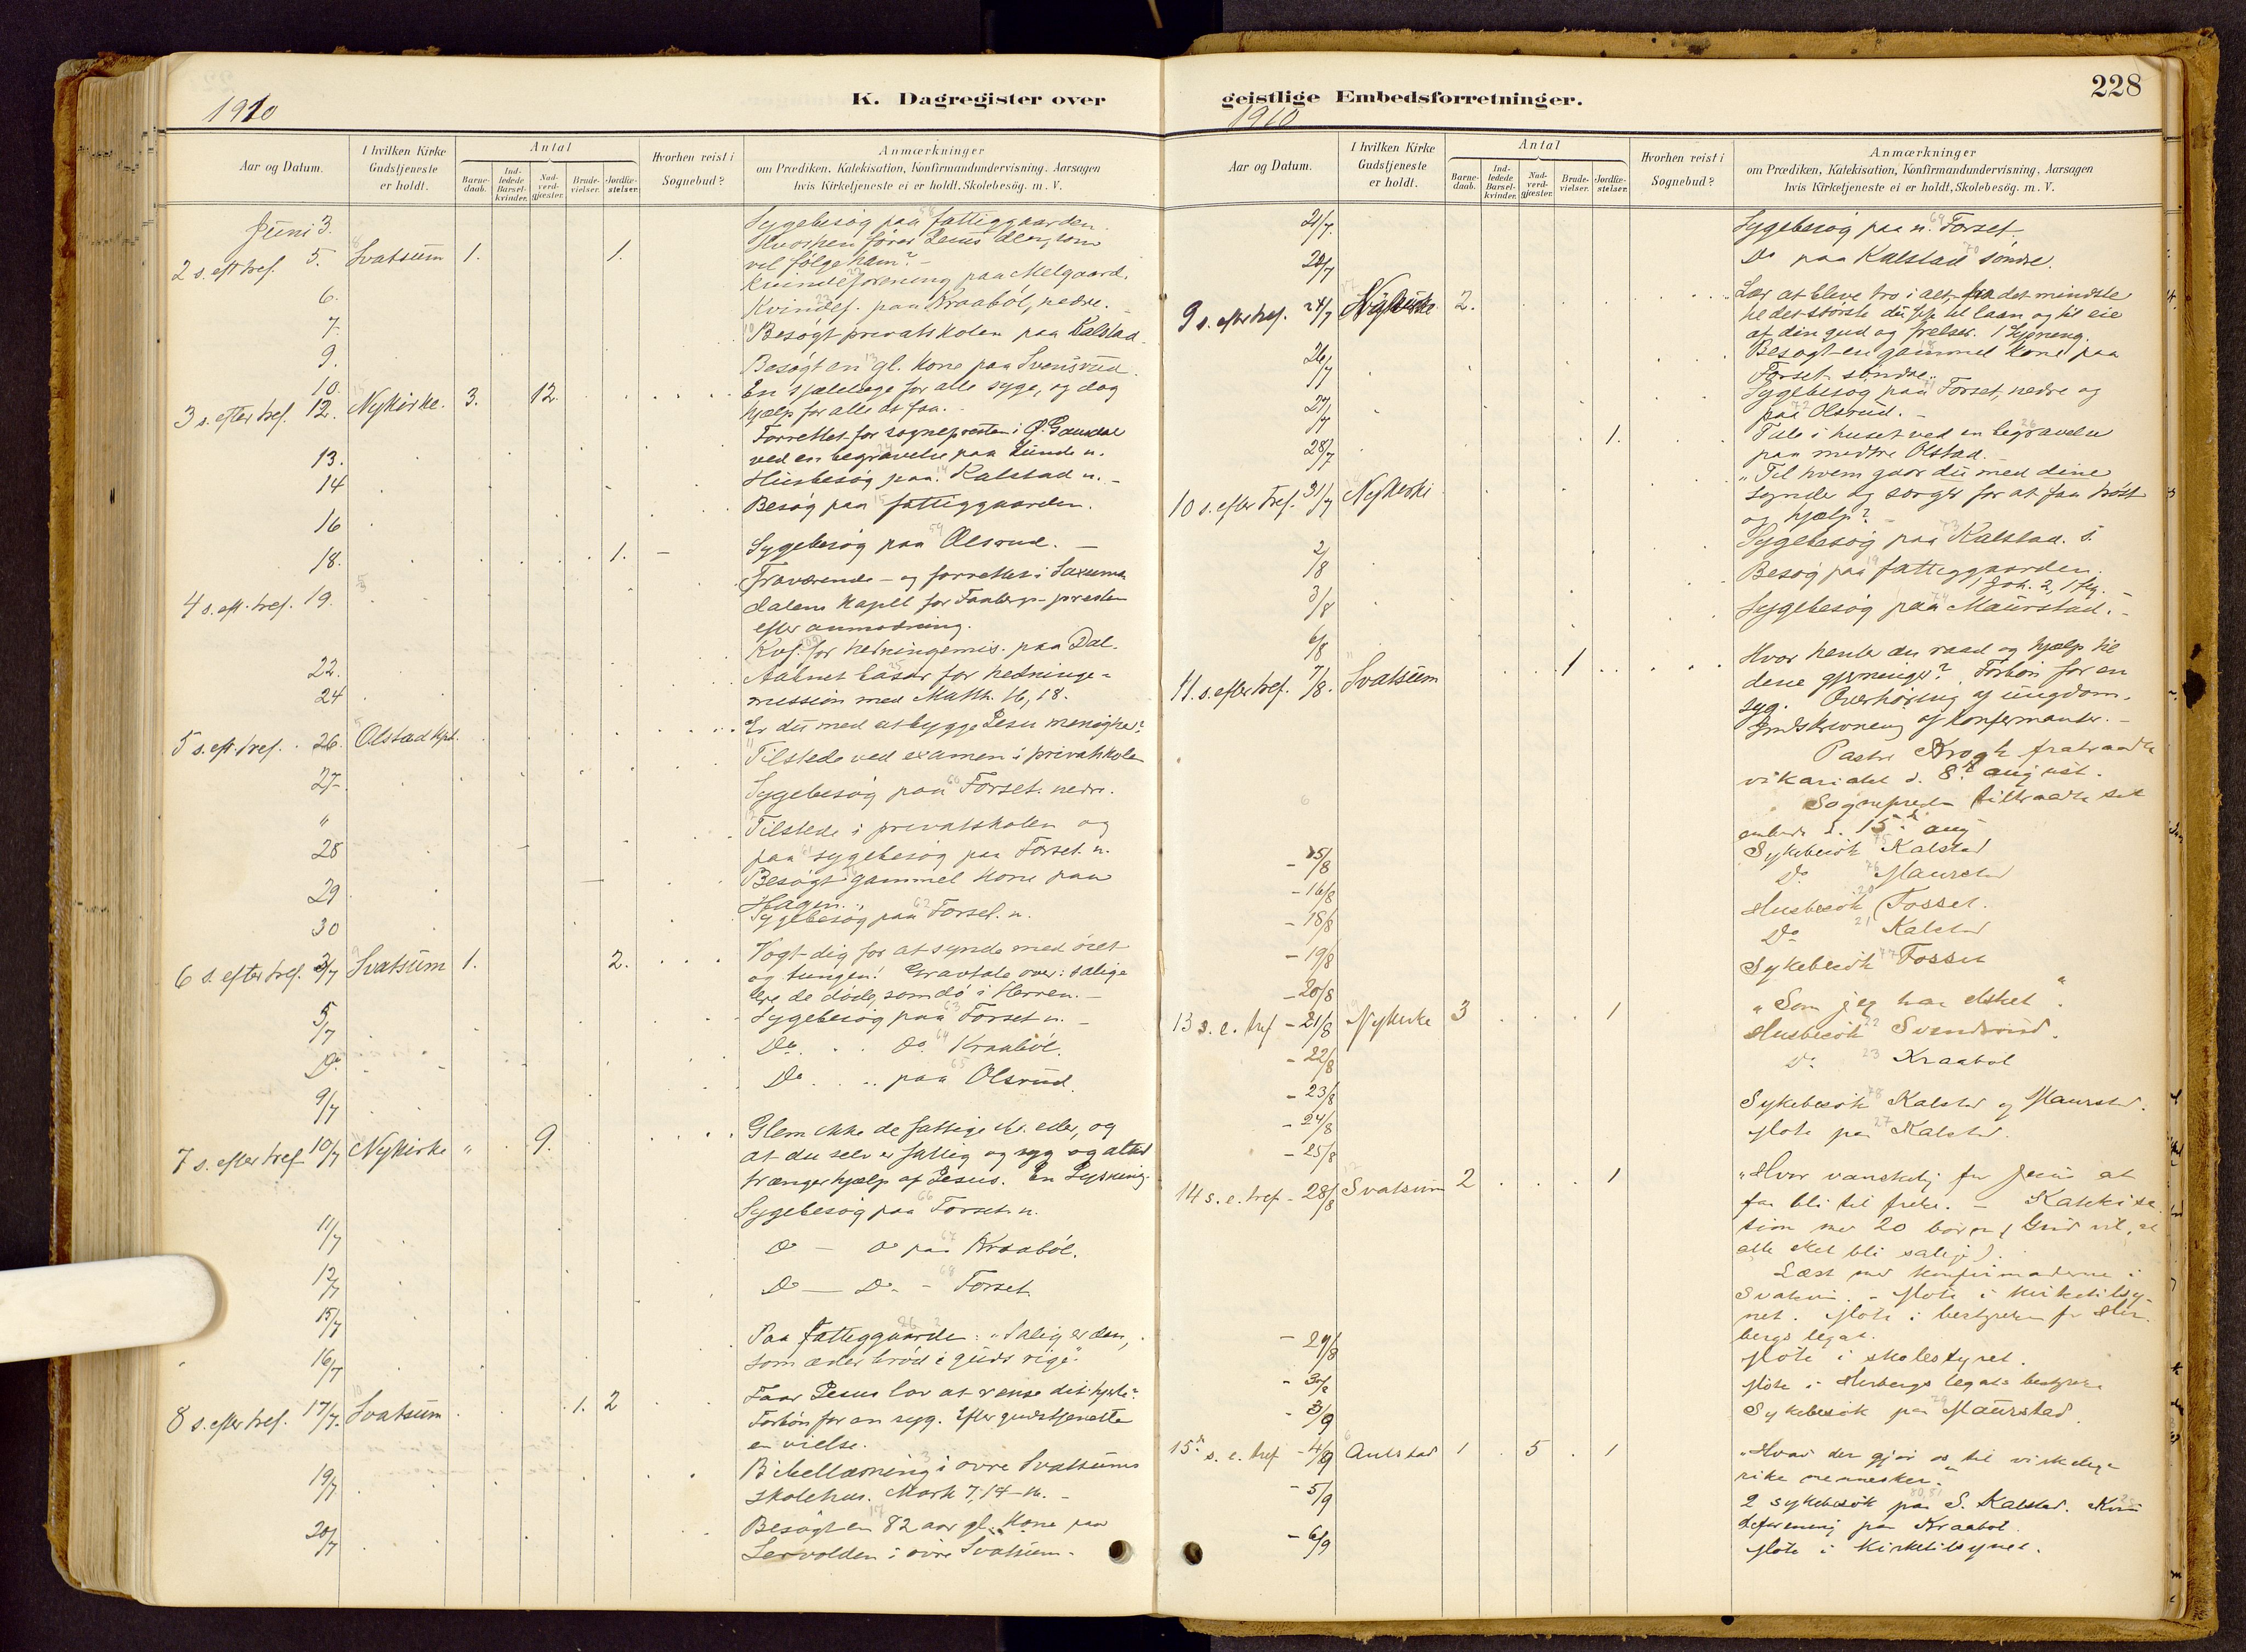 1910
K. Dagregister over
Aar og Datum.
I hvilken Kirke
Gudstjeneste
er holdt.
Antal
Barne-
daab.
Ind-
ledede
Barsel-
kvinder.
Nad-
verd-
gjæster.
Brude-
vielser.
Jordfæ-
stelser.
Hvorhen reist i
Sognebud?
Anmærkninger
om Prædiken, Katekisation, Konfirmandundervisning, Aarsagen
hvis Kirketjeneste ei er holdt, Skolebesøg. m. V.
Juni 3. Sygebesøg paa fattiggaarden.
2 s. eft tref. 5. Svatsum 1. 1. Hvorhen fører Jesus den, som
vil følge ham? -
6. Kvindeforening paa Melgaard.
7. Kvindef. paa Kraabøl, nedre.
9. Besøgt privatskolen paa Kalstad.
10. Besøgt en gl. kone paa Svensrud.
3 s. efter tref. 12. Nykirke. 3. 12. En sjælelæge for alle syge, og dog
hjælp for alle at faa. -
13. Forrettet for sognepresten i Ø. Gausdal
ved en begravelse paa Lunde n.
14 Husbesøg paa Kalstad n. -
16 Besøg paa fattiggaarden.
18. 1. - Sygebesøg paa Olsrud. -
4 s. eft. tref. 19. Fraværende - og forrettet i Saxum-
dalens kapel for Faabergs-presten
efter anmodning.
22. Kvf. for hedningemis. paa Dal.
24 Aabnet basar for hedninge-
mission med Matth. 16, 18.
5 s. eft. tref. 26. Olstad kpl. Er du med at bygge Jesu menighed?
27- Tilstede ved examen i privatskolen
" Sygebesøg paa Forset. nedre.
28 Tilstede i privatskolen og
paa sygebesøg paa Forset. n.
29 Besøgt gammel kone paa
Hagen.
30 Sygebesøg paa Forset. n.
6 s. efter tref. 3/7 Svatsum 1. 2. Vogt dig for at synde med øret
og tungen! Gravtale over: salige
ere de døde, som dø i Herren. -
5/7 Sygebesøg paa Forset n. -
Do. Do. Do. Kraabøl.
9/7 Do paa Olsrud.
7 s. efter tref 10/7 Nykirke " 9. Glem ikke de fattige eller, og
at du selv er fattig og syg og altid
trænger hjælp af Jesus. En Lysning.
11/7 Sygebesøg paa Forset. n.
12/7 Do - Do paa Kraabøl.
15/7 Do - Do - Forset
16/7 Paa fattiggaarden: "Salig er den,
som æder brød i guds rige."
8 s. efter tref. 17/7. Svatsum 1. 2 Faar Jesus lov at rense dit hjerte?
Forbøn for en syg. Efter gudstjenesten
en vielse.
19/7 Bibellæsning i øvre Svatsums
skolehus. Mark 7, 14-16. -
20/7 Besøgt en 82 aar gl. kone paa
Lervolden i øvre Svatsum. -
geistlige Embedsforretninger.
228
1910
Aar og Datum.
I hvilken Kirke
Gudstjeneste
er holdt.
Antal
Barne-
daab.
Ind-
ledede
Barsel-
kvinder.
Nad-
verd-
gjæster.
Brude-
vielser.
Jordfæ-
stelser.
Hvorhen reist i
Sognebud?
Anmærkninger
om Prædiken, Katekisation, Konfirmandundervisning, Aarsagen
hvis Kirketjeneste ei er holdt, Skolebesøg. m. V.
21/7. Sygebesøg paa n. Forset
Do paa Kalstad søndre.
9 s. efter tref. 24/7 Nykirke 2. Lær at bleve tro i alt, fra det mindste
til det største du fik til laan og til eie
af din gud og frelser. 1 Lysning.
26/7 Besøgt en gammel kone paa
Forset søndre.
27/7 Sygebesøg paa Forset, nedre og
paa Olsrud. -
28/7 1. Tale i huset ved en begravelse
paa nedre Olstad. -
10 s. efter tref. 31/7 Nykirke "Til hvem gaar du med dine
synder og sorger for at faa trøst
og hjælp? -
2/8 Sygebesøg paa Kalstad. s.
3/8 Besøg paa fattiggaarden.
1 Joh. 2, 1 flg. -
6/8 Sygebesøg paa Maurstad. -
11. s. efter tref. 7/8. Svatsum 1 Hvor henter du raad og hjælp til
dine gjerninger? Forbøn for en
syg. Overhøring af ungdom.
Indskrivning af konfirmanter. -
Pastor Krogh fratraadte
vikariatet d. 8. august.
Sognepresten tiltraadte sit
embede d. 15de aug
- 15/8 Sykebesøk Kalstad
- 16/8 Do Maurstad
- 18/8 Husbesøk Fosset.
- 19/8 Do Kalstad
- 20/8 Sykebesøk Fosset
13 s. e. tref - 21/8 Nykirke 3 1 "Som jeg har elsket".
- 22/8 Husbesøk Svendsrud.
- 23/8 Do Kraabøl
- 24/8 Sykebesøk Kalstad og Maurstad.
- 25/8 Møte paa Kalstad.
14 s. e. tref - 28/8 Svatsum 2 1 "Hvor vanskelig for Jesus at
faa bli til frelse. - Katekisa
tion med 20 børn (Gud vil, at
alle skal bli salige).
Læst med konfirmanterne i
Svatsum. - Møte i kirketilsy-
net. Møte i bestyrelsen for Her
bergs legat.
- 29/8 Møte i skolestyret.
Møte i Herbergs legats bestyrelse
- 3/9 Sykebesøk paa Maurstad.
15de s. e. tref - 4/9 Aulstad 1 5 1 "Hvad der gjør os til virkelige
rike mennesker."
- 5/9 2 sykebesøk paa S. Kalstad. Kvin
deforening paa Kraabøl.
- 6/9 Møte i kirketilsynet.